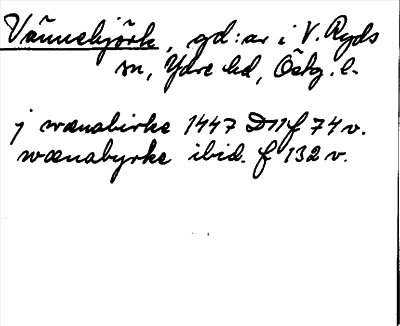 Vännebjörk, gd:ar i V. Ryds
sn, Ydre hd, Östg. l.
j wænabirke 1447 D11 f 74 v.
wænabyrke ibid. f 132 v.